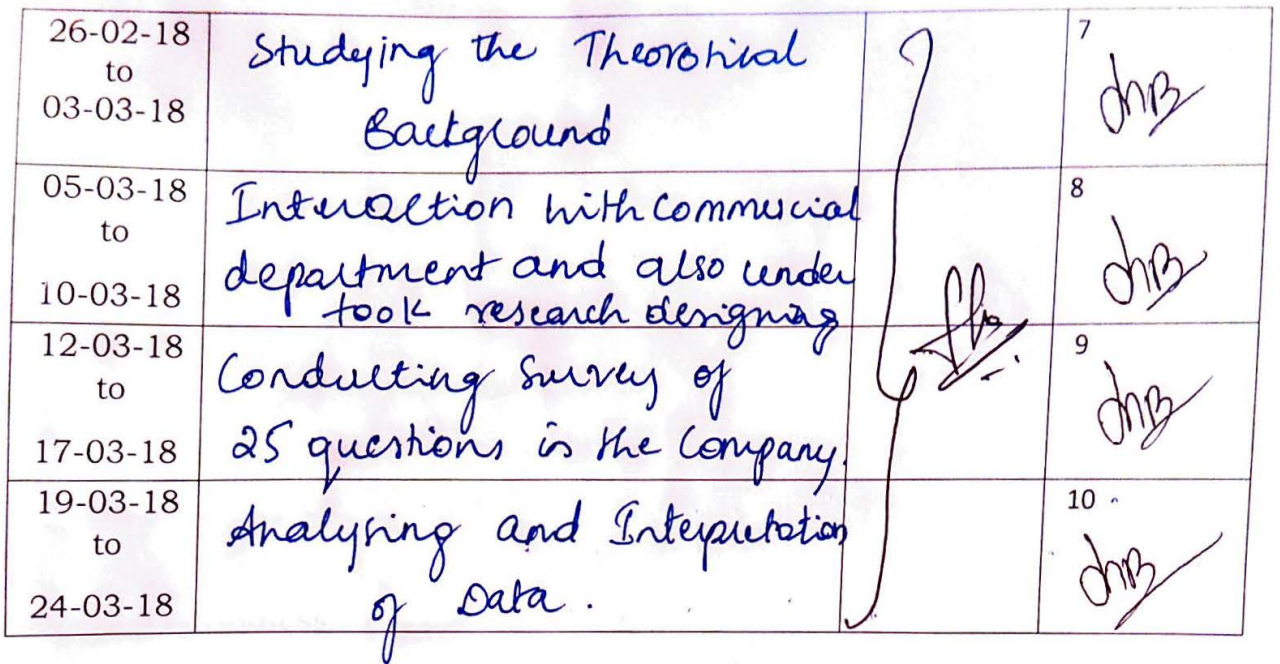 26-02-18
to
03-03-18
Studying the Theorotical
Background
7
05-03-18
to
10-03-18
Interaction with commercial
department and also under
took research designing
8
12-03-18
to
17-03-18
Conducting Survey of
25 questions in the Company.
9
19-03-18
to
24-03-18
Analysing and Interpretation
of Data.
10